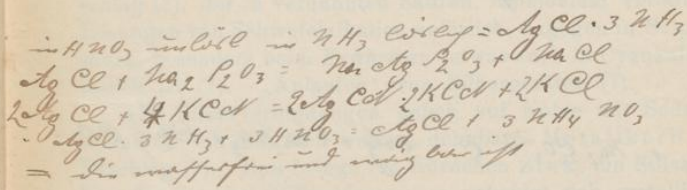 in HNO3 unlösl in NH3 löslich = AgCl · 3 NH3
AgCl + Na2 S2O3 = Na Ag S2O3 + NaCl
2AgCl + 4KCN = 2AgCN · 2KCN + 2KCl
AgCl · 3 NH3 + 3HNO3 = AgCl + 3 NH4 NO3
= die wasserfrei und wägbar ist